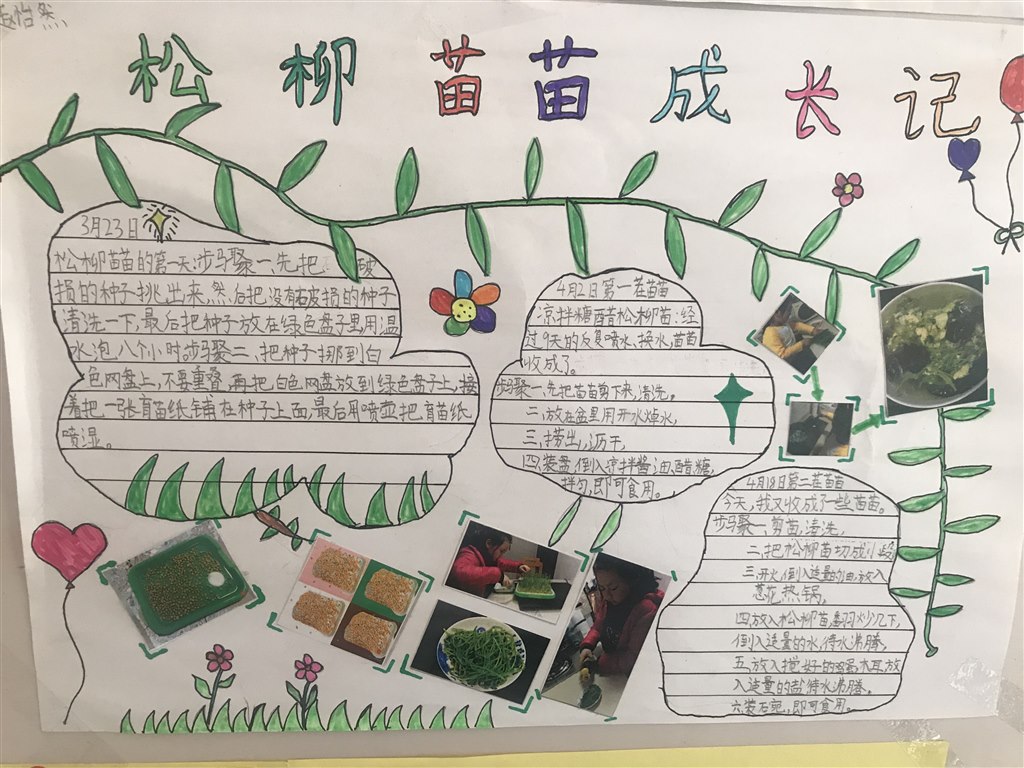 赵怡然
松柳苗苗成长记
3月23日
松柳苗苗的第一天:步骤一、先把 破
损的种子挑出来,然后把没有破损的种子
清洗一下,最后把种子放在绿色盘子里,用温
水泡八个小时步骤二、把种子挪到白
色网盘上,不要重叠,再把白色网盘放到绿色盘子上,接
着把一张育苗纸铺在种子上面,最后用喷壶把育苗纸
喷湿。
4月2日第一茬苗苗
凉拌糖醋松柳苗:经
过9天的反复喷水、换水,苗苗
收成了。
步骤:一、先把苗苗剪下来,清洗。
二、放在盆里用开水焯水,
三、捞出,沥干,
四、装盘,倒入凉拌酱油、醋、糖,
拌匀,即可食用。
4月18日第二茬苗苗
今天,我又收成了一些苗苗。
步骤一、剪苗,清洗,
二、把松柳苗切成小段
三、开火,倒入适量的油,放入
葱花热锅,
四、放入松柳苗翻炒几下,
倒入适量的水,待水沸腾,
五、放入搅好的鸡蛋、木耳,放
入适量的盐待水沸腾。
六、装石宛,即可食用。